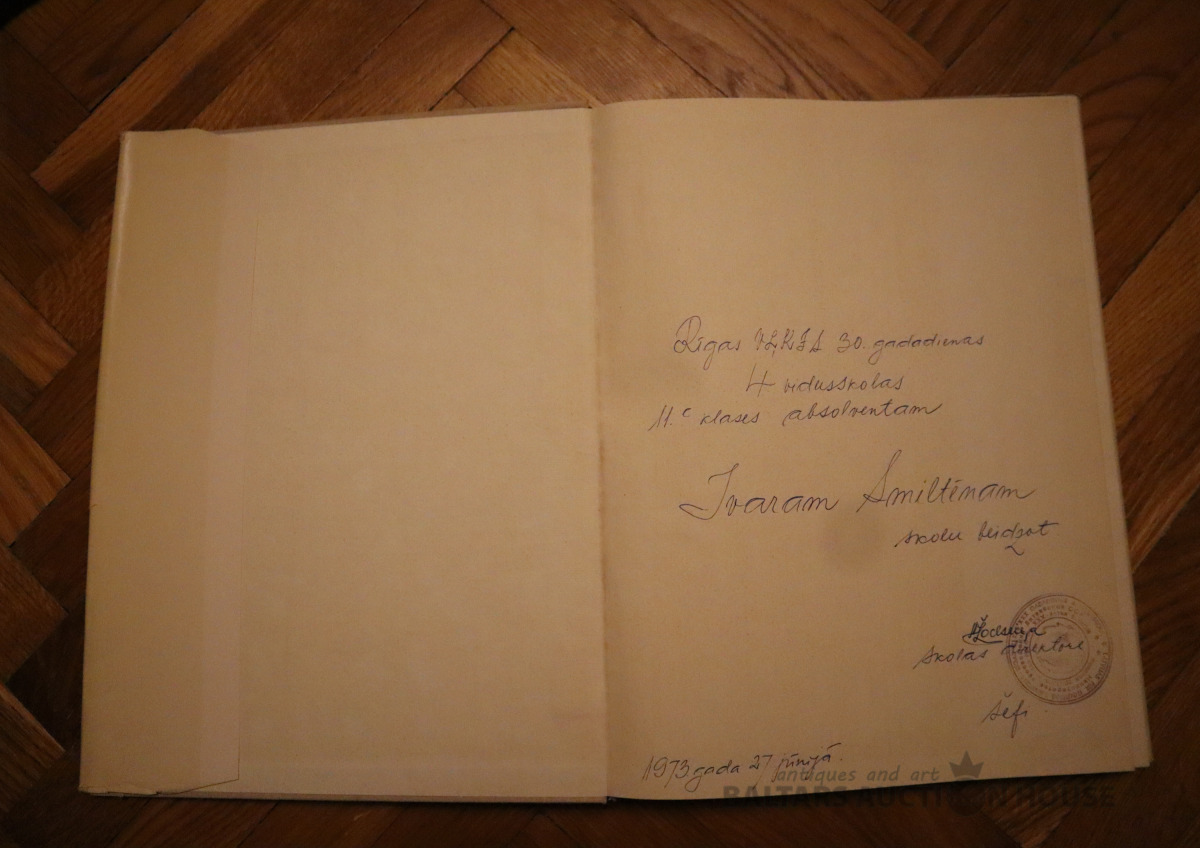 Rīgas VĻKJS 30. gadadienas
4 vidusskolas
11.c klases absolventam
Ivaram Smiltēnam
skolu beidzot
skolas direktore
šefi
1973. gada 27 jūnijā.
antiques and art
BALTARS AUCTION HOUSE